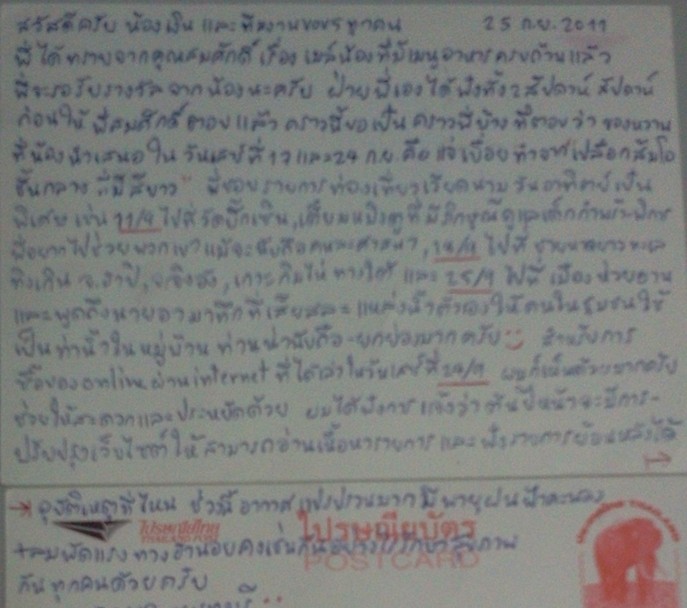 สวัสดีครับ น้องเงิน และทีมงานของรทุกคน 25 ก.ย. 2011
พี่ได้ทราบจากคุณสมศักดิ์ เรื่อง เมล์น้องที่มีเมนูอาหารครบถ้วนแล้ว
พี่จะรอรับรางวัลจากน้องนะครับ ฝ่ายพี่เองได้ฟังทั้ง 2 สัปดาห์ สัปดาห์
ก่อนให้ พี่สมศักดิ์ตอบแล้ว คราวนี้ขอเป็นคราวพี่บ้าง ที่ตอบว่า ของหวาน
ที่น้องนำเสนอใน วันเสาร์ที่ 17 และ 24 ก.ย. คือ แจ่เบื่อย ทำจาก "เปลือกส้มโอ
ชั้นกลาง ที่มีสีขาว" พี่ชอบรายการท่องเที่ยวเวียดนาม วันอาทิตย์เป็น
พิเศษ เช่น 11/9 ไปที่วัดบั๊กเซิน, ที่มีภิกษุณีดูแลเด็กกำพร้า-พิการ
พี่อยากไปช่วยพวกเขา แม้จะนับถือคนละศาสนา, 18/9 ไปที่ ชายหาดยาว ทะเล
เกาะ ทางใต้ และ 25/9 ไปที่ เมือง
และพูดถึงนาย ที่เสียสละ แหล่งน้ำตัวเองให้คนในชุมชนใช้
เป็นท่าน้ำในหมู่บ้าน ท่านน่านับถือ-ยกย่องมากครับ สำหรับการ
ซื้อของ online ผ่าน internet ที่ได้เล่าในวันเสาร์ที่ 24/9 ผมก็เห็นด้วยมากครับ
ช่วยให้สะดวกและประหยัดด้วย ผมได้ฟังการแจ้งว่า ต้นปีหน้าจะมีการ-
ปรับปรุงเว็บไซต์ให้สามารถอ่านเนื้อหารายการ และฟังรายการย้อนหลังได้
ช่วงนี้ อากาศแปรปรวนมาก มีพายุฝนฟ้าคะนอง
ไปรษณีย์ไทย ไปรษณียบัตร
THAILAND POST POSTCARD
+ลมพัดแรง ทางฮานอยคงเช่นกัน รักษาสุขภาพ
กันทุกคนด้วยครับ